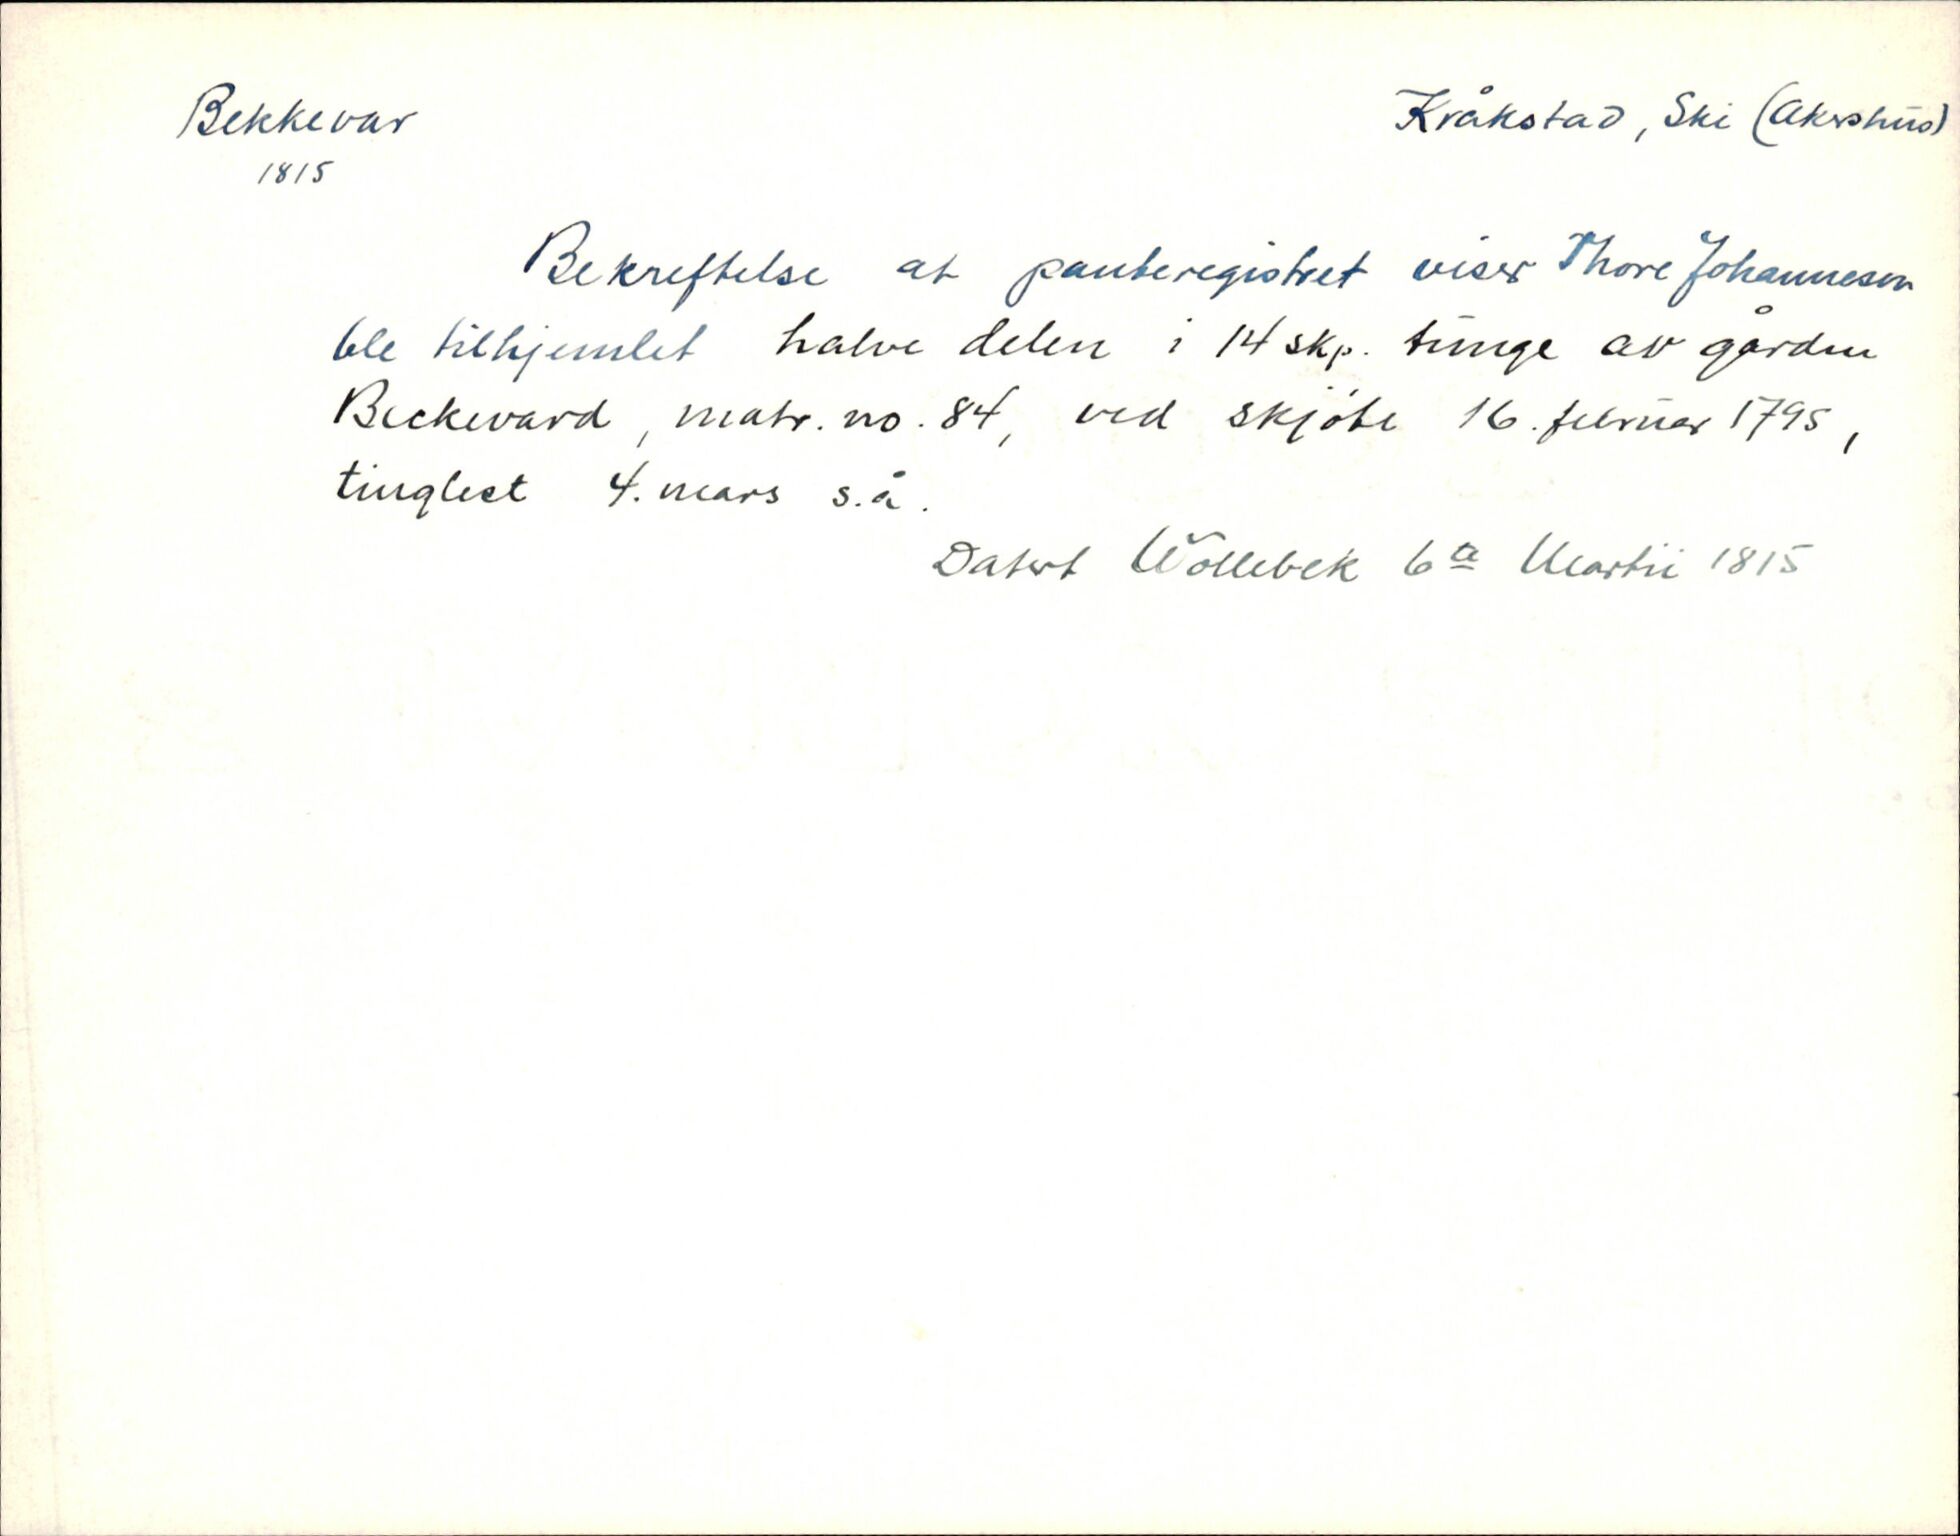 Bekkevar
Kråkstad, Ski (Akershus)
1815
Bekreftelse at panteregistret viser Thore Johannesen
ble tilhjemlet halve delen i 14 skp. tunge av gården
Beckevard, matr. no. 84, ved skjöte 16. februar 1795,
tinglest 4. mars s.å.
Datert Wollebek 6te Martii 1815